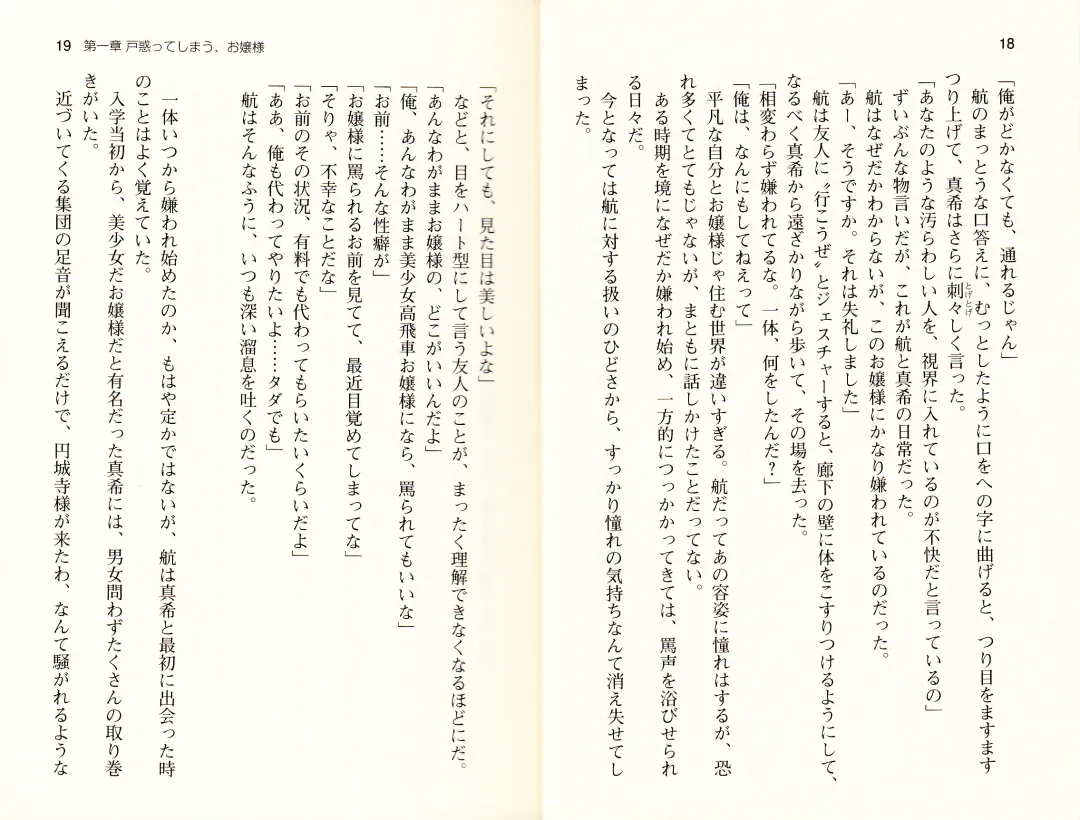 18
「俺がどかなくても、通れるじゃん」
航のまっとうな口答えに、むっとしたように口をへの字に曲げると、つり目をますます
つり上げて、真希はさらに刺々しく言った。
とげとげ
「あなたのような汚らわしい人を、視界に入れているのが不快だと言っているの」
ずいぶんな物言いだが、これが航と真希の日常だった。
航はなぜだかわからないが、このお嬢様にかなり嫌われているのだった。
「あー、そうですか。それは失礼しました」
航は友人に〝行こうぜ〟とジェスチャーすると、廊下の壁に体をこすりつけるようにして、
なるべく真希から遠ざかりながら歩いて、その場を去った。
「相変わらず嫌われてるな。一体、何をしたんだ?」
「俺は、なんにもしてねえって」
平凡な自分とお嬢様じゃ住む世界が違いすぎる。航だってあの容姿に憧れはするが、恐
れ多くてとてもじゃないが、まともに話しかけたことだってない。
ある時期を境になぜだか嫌われ始め、一方的につっかかってきては、罵声を浴びせられ
る日々だ。
今となっては航に対する扱いのひどさから、すっかり憧れの気持ちなんて消え失せてし
まった。
19 第一章 戸惑ってしまう、お嬢様
「それにしても、見た目は美しいよな」
などと、目をハート型にして言う友人のことが、まったく理解できなくなるほどにだ。
「あんなわがままお嬢様の、どこがいいんだよ」
「俺、あんなわがまま美少女高飛車お嬢様になら、罵られてもいいな」
「お前……そんな性癖が」
「お嬢様に罵られるお前を見てて、最近目覚めてしまってな」
「そりゃ、不幸なことだな」
「お前のその状況、有料でも代わってもらいたいくらいだよ」
「ああ、俺も代わってやりたいよ……タダでも」
航はそんなふうに、いつも深い溜息を吐くのだった。
一体いつから嫌われ始めたのか、もはや定かではないが、航は真希と最初に出会った時
のことはよく覚えていた。
入学当初から、美少女だお嬢様だと有名だった真希には、男女問わずたくさんの取り巻
きがいた。
近づいてくる集団の足音が聞こえるだけで、円城寺様が来たわ、なんて騒がれるような